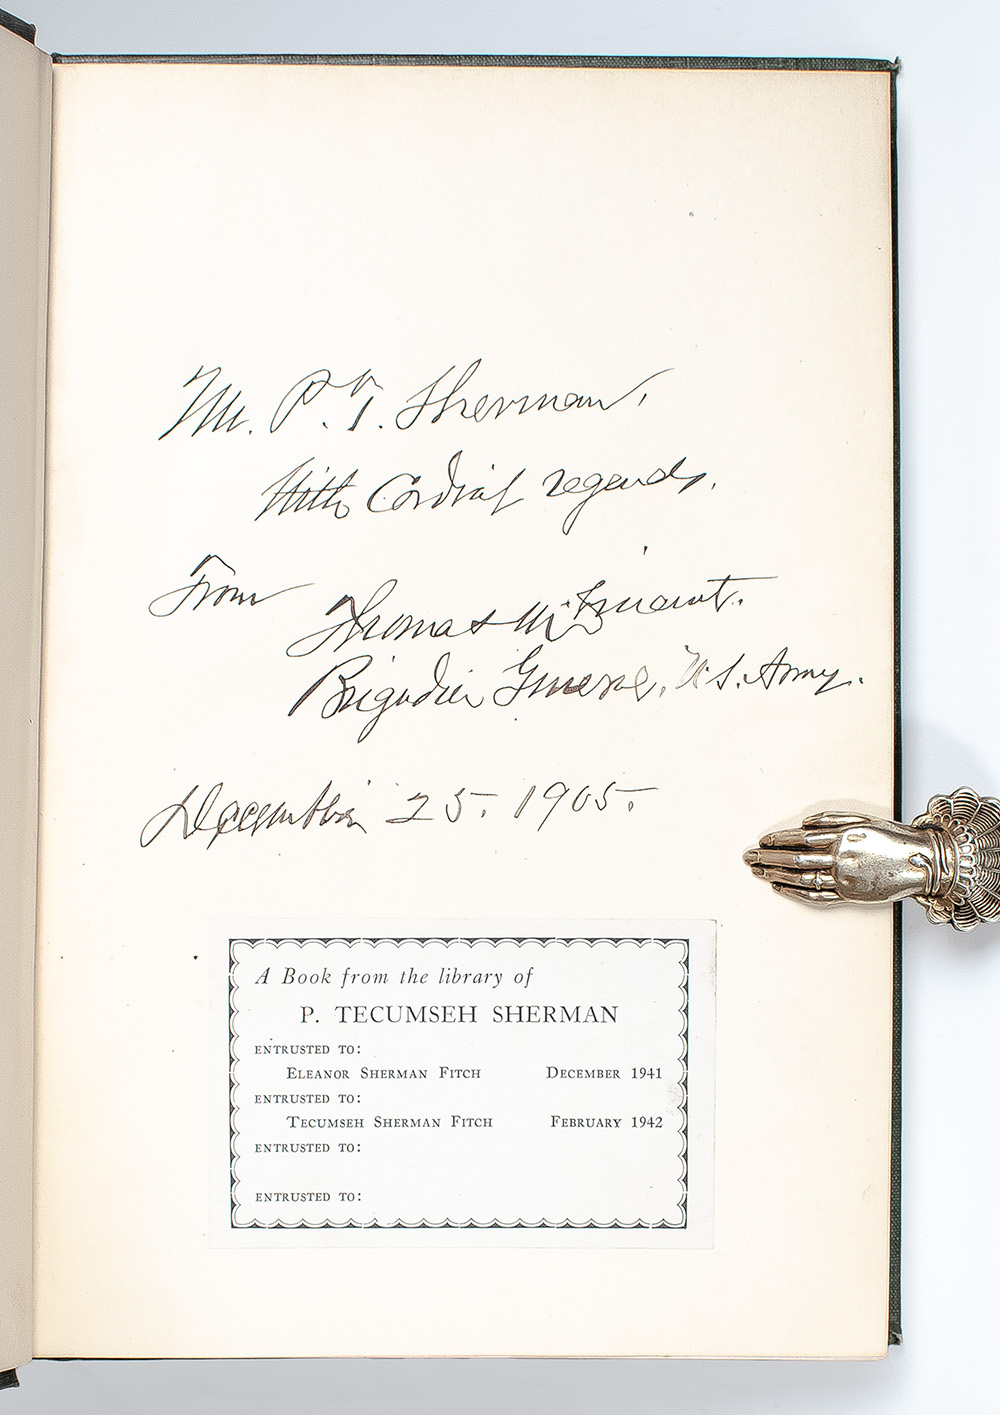 Mr. P. T. Sherman,
With Cordial regards,
From
Thomas M. Vincent.
Brigadier General, U.S. Army.
December 25. 1905.
A Book from the library of
P. TECUMSEH SHERMAN
ENTRUSTED TO:
ELEANOR SHERMAN FITCH DECEMBER 1941
ENTRUSTED TO:
TECUMSEH SHERMAN FITCH FEBRUARY 1942
ENTRUSTED TO:
ENTRUSTED TO: